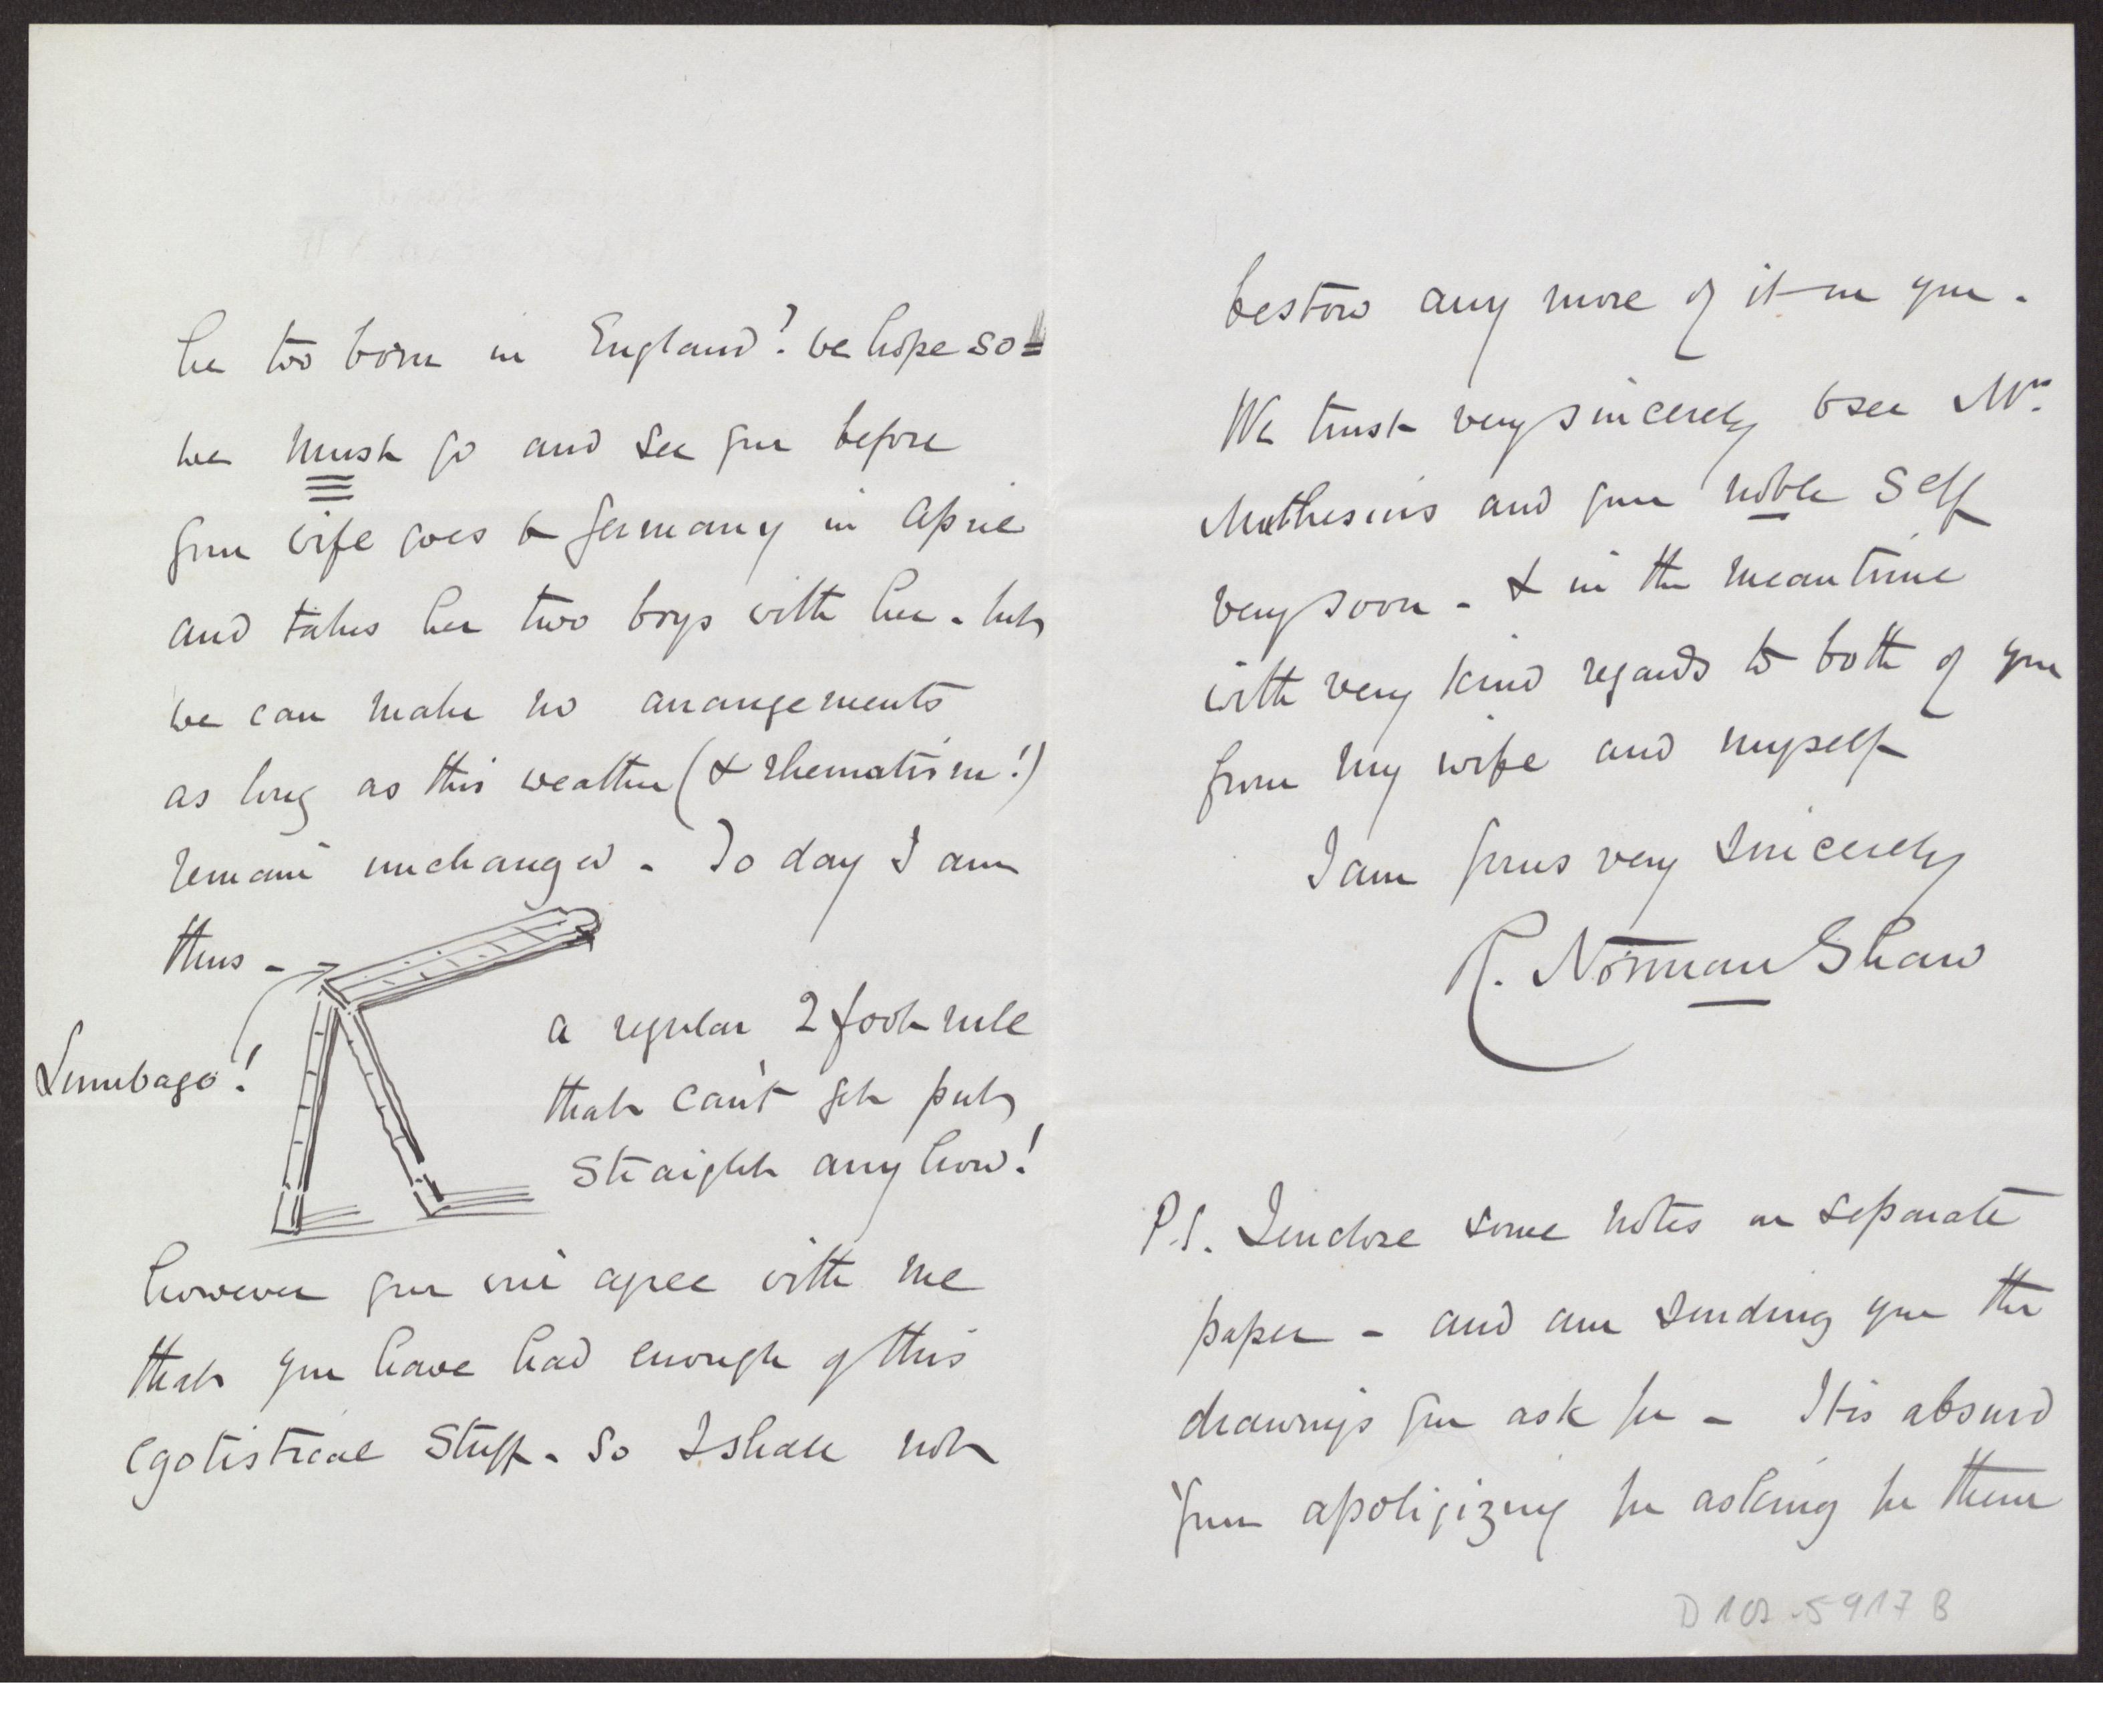 he too born in England? we hope so!!
we must go and see you before
your wife goes to Germany in April
and takes her two boys with her - but
we can make no arrangements
as long as this weather (& rhematism!)
remain unchanged - To day I am
thus -
Lumbago!
a regular 2 foot rule
that can't get put
straight any how!
however you will agree with me
that you have had enough of this
egotistical stuff. So I shall not
bestow any more of it on you.
We trust very sincerely to see Mrs.
Muthesius and your noble self
very soon - & in the meantime
with very kind regards to both of you
from my wife and myself
I am yours very sincerely
R. Norman Shaw
P.S. I enclose some notes on separate
paper - and am sending you the
drawings you ask for - It is absurd
your apoligizing for asking for them
D 102-5917 B